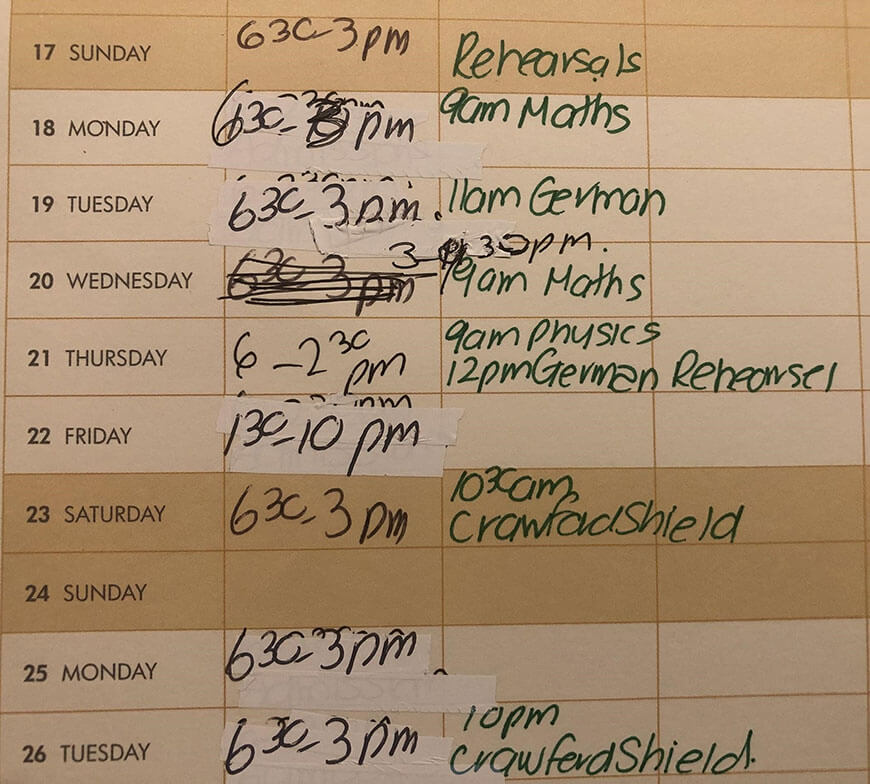 17 SUNDAY 630-3pm Rehearsals
18 MONDAY 630- pm 9am Maths
19 TUESDAY 630-3pm. 11am German
3- 30pm.
20 WEDNESDAY 630-3pm 9am Maths
21 THURSDAY 6-230pm 9am Physics
12pm German Rehearsel
22 FRIDAY 130-10pm
23 SATURDAY 630-3pm 1030am,
Crawford Shield
24 SUNDAY
25 MONDAY 630-3pm
26 TUESDAY 630-3pm 10pm
Crawford Shield.